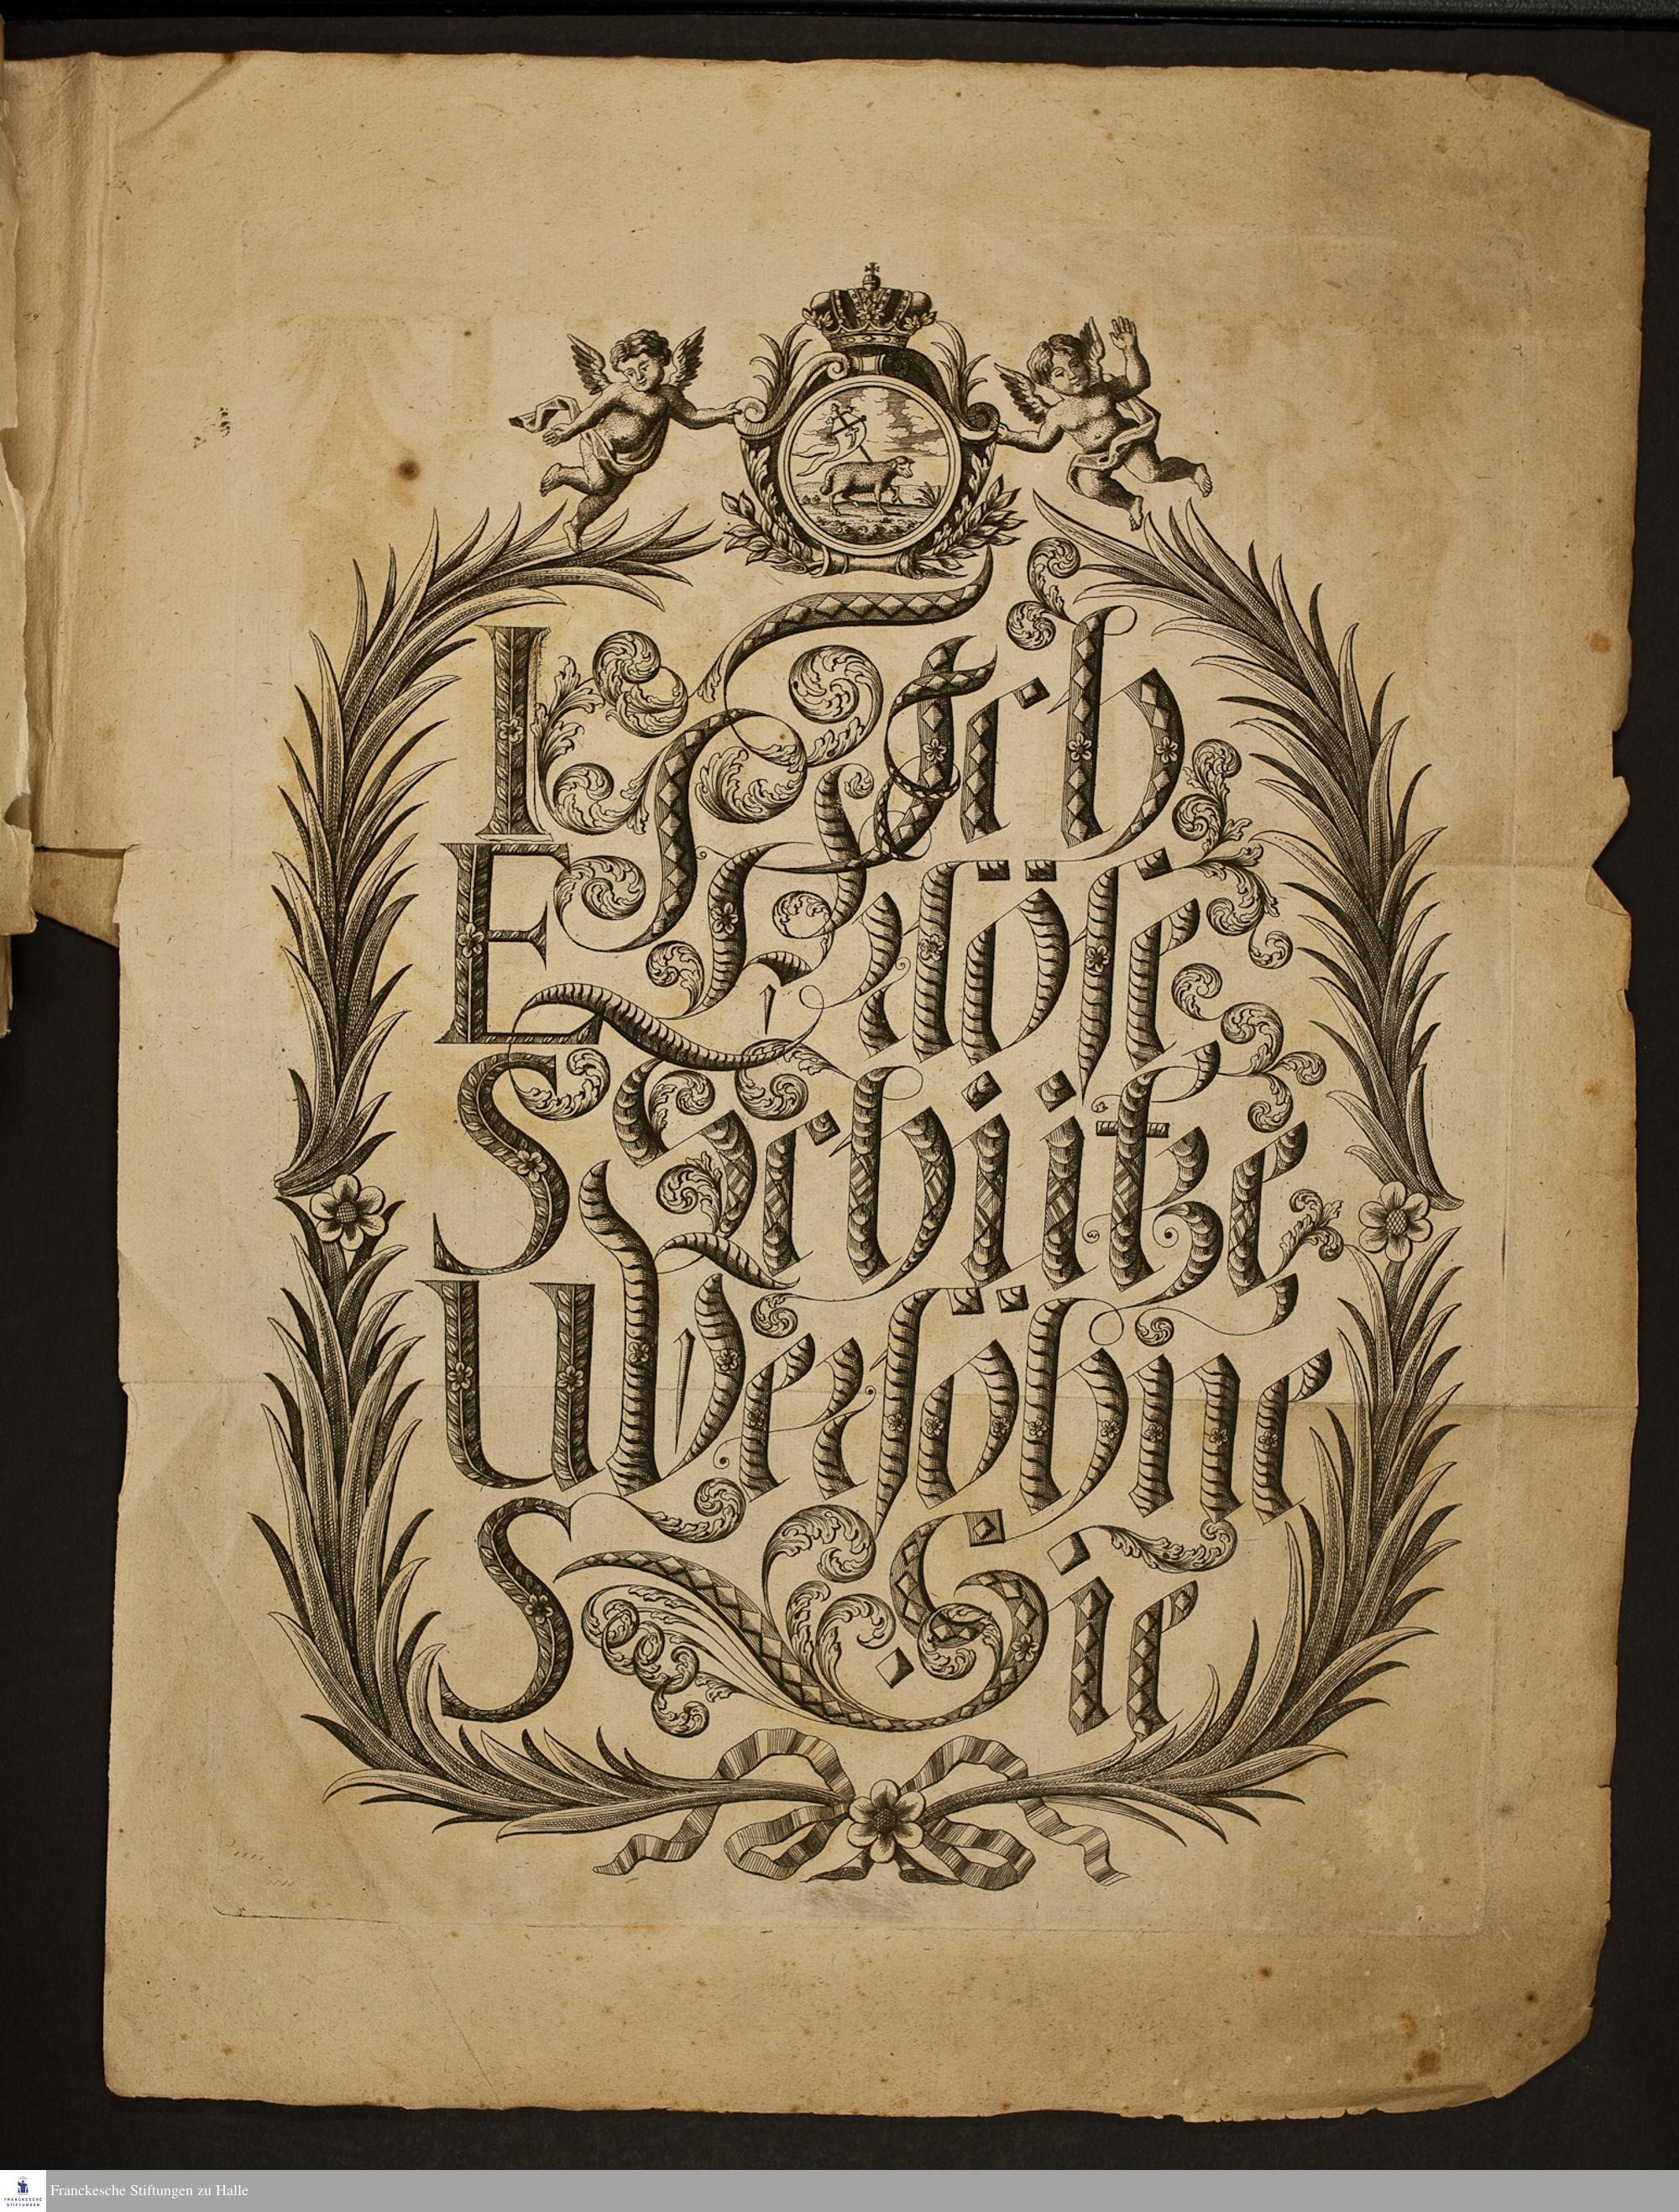 I Ich
E Erlöse
S Schütze
U Versöhne
S Sie
FRANCKESCHE
STIFTUNGEN
Franckesche Stiftungen zu Halle